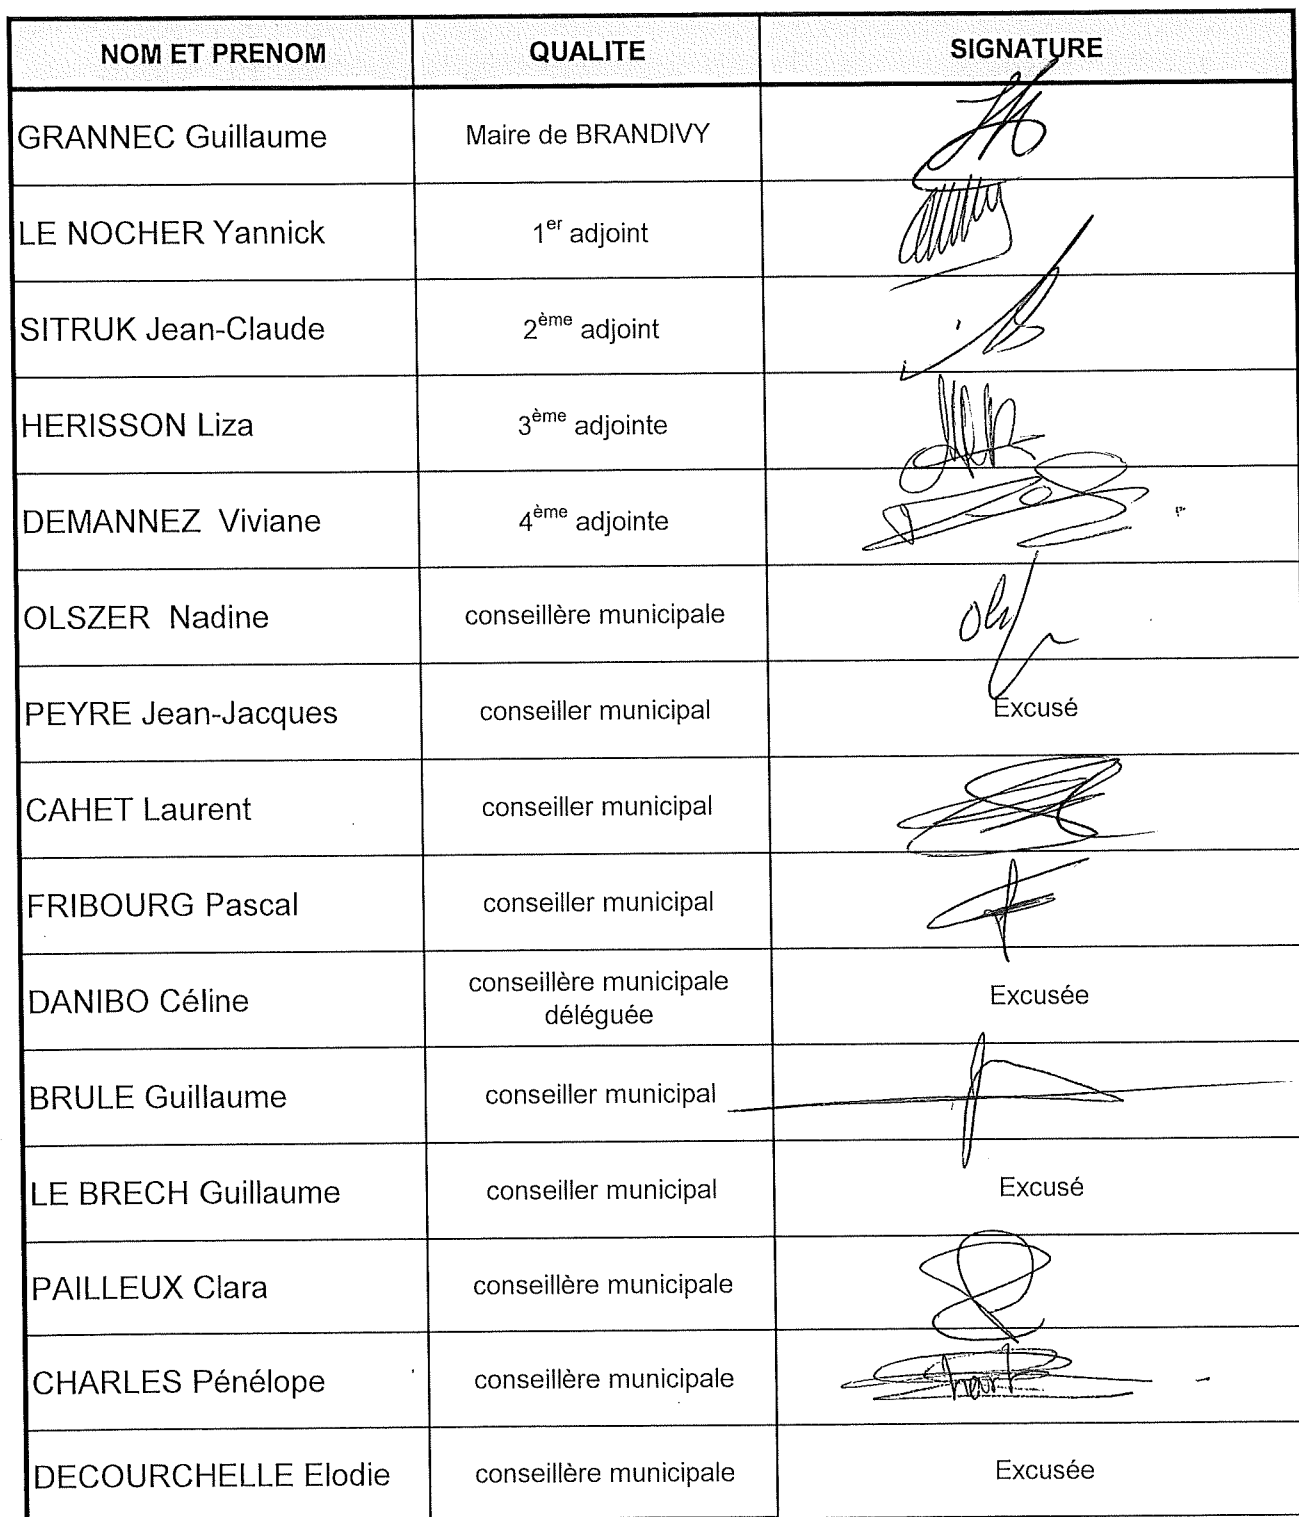 NOM ET PRENOM QUALITE SIGNATURE
GRANNEC Guillaume Maire de BRANDIVY
LE NOCHER Yannick 1er adjoint
SITRUK Jean-Claude 2ème adjoint
HERISSON Liza 3ème adjointe
DEMANNEZ Viviane 4ème adjointe
OLSZER Nadine conseillère municipale
PEYRE Jean-Jacques conseiller municipal Excusé
CAHET Laurent conseiller municipal
FRIBOURG Pascal conseiller municipal
DANIBO Céline conseillère municipale
déléguée Excusée
BRULE Guillaume conseiller municipal
LE BRECH Guillaume conseiller municipal Excusé
PAILLEUX Clara conseillère municipale
CHARLES Pénélope conseillère municipale
DECOURCHELLE Elodie conseillère municipale Excusée